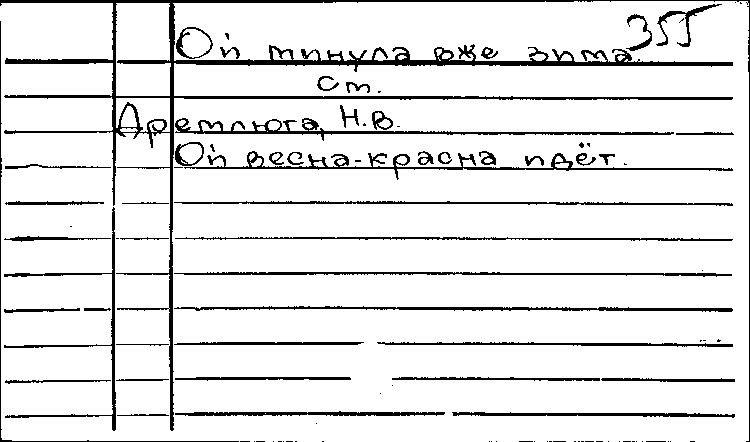 Ой минула вже зима 355
см.
Аремлюга, Н.В.
Ой весна-красна идёт.